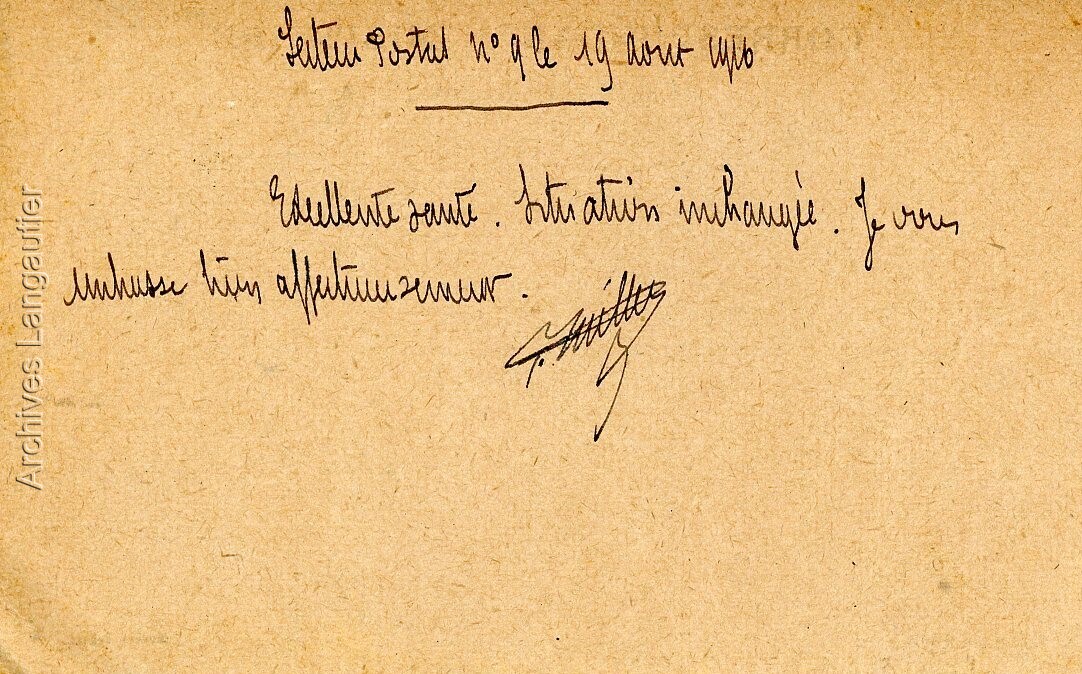 Secteur Postal n° 9 le 19 août 1916
Excellente santé. Situation inchangée. Je vous
embrasse bien affectueusement.
Archives Langautier